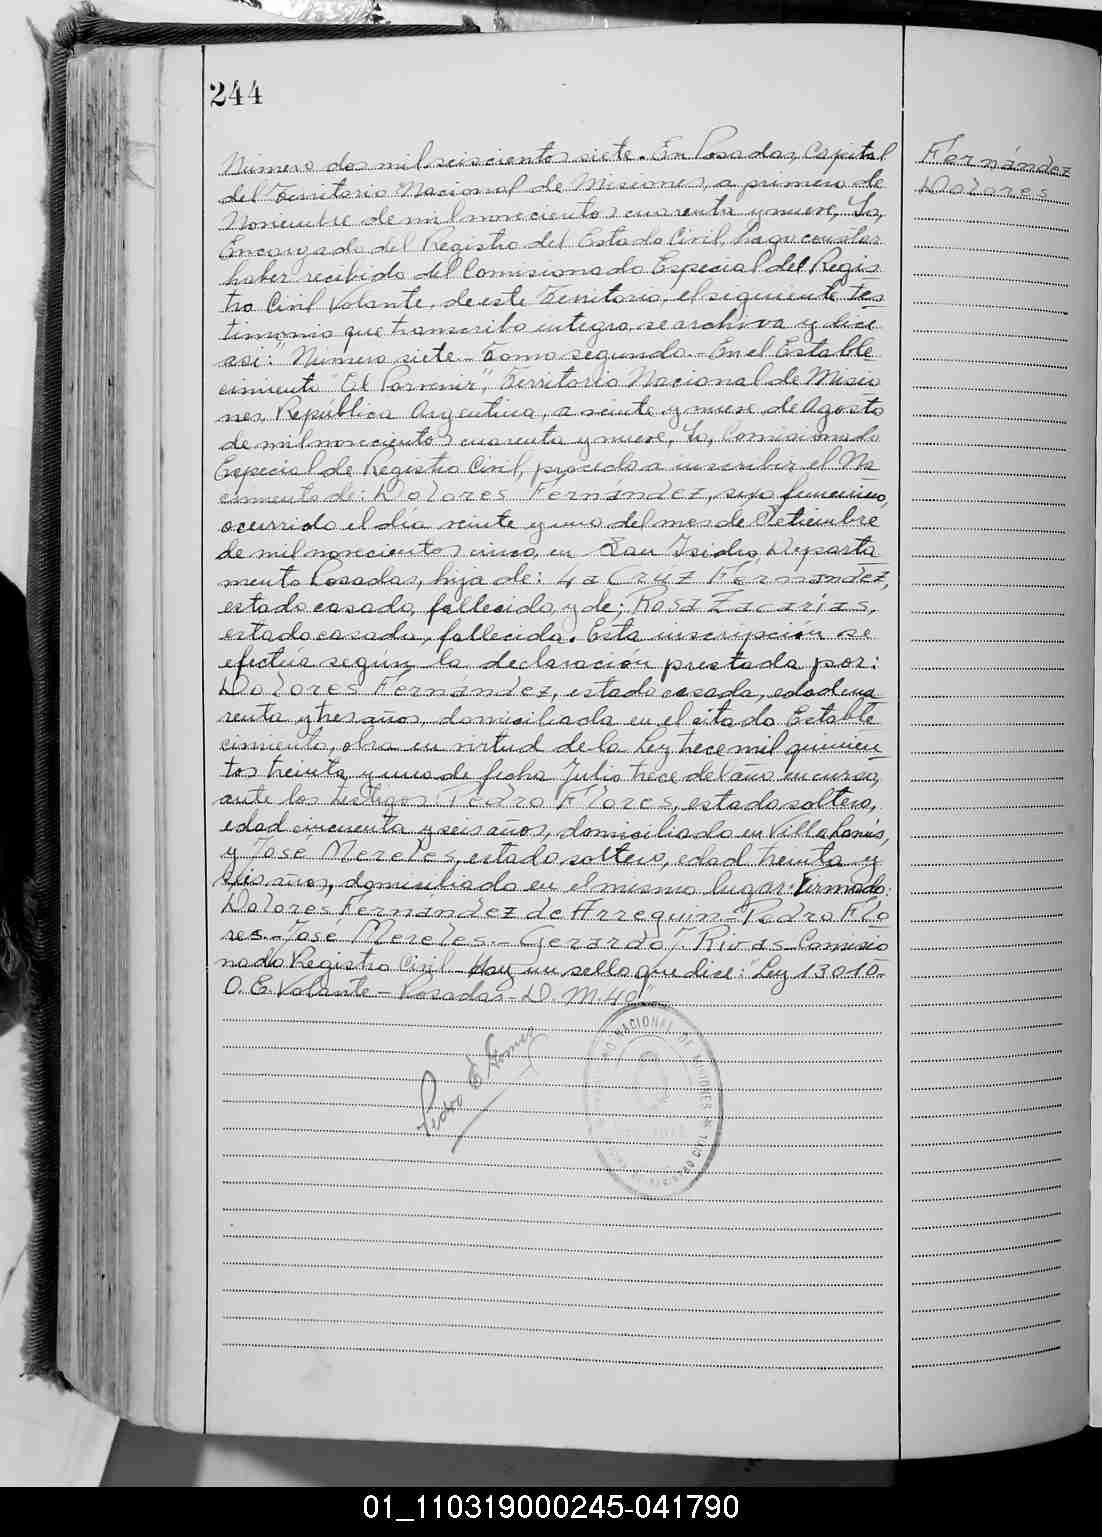 244
Número dos mil seiscientos siete. En Posadas, Capital
del Territorio Nacional de Misiones, a primero de
Noviembre de mil novecientos cuarenta y nueve, Yo,
Encargado del Registro del Estado Civil, hago constar
haber recibido del Comisionado Especial del Regis
tro Civil Volante, de este Territorio, el siguiente tes
timonio que transcribo integro, se archiva y dice
asi: "Número siete - Tomo segundo - En el Estable
cimiento "El Porvenir", Territorio Nacional de Misio
nes, República Argentina, a veinte y nueve de Agosto
de mil novecientos cuarenta y nueve, Yo, Comisionado
Especial de Registro Civil, procedo a inscribir el Na
cimiento de: Dolores Fernández, sexo femenino,
ocurrido el día veinte y uno del mes de Setiembre
de mil novecientos cinco, en San Isidro, Departa
mento Posadas, hija de: La Crúz Fernández,
estado casado, fallecido, y de; Rosa Zacarías,
estado casada, fallecida. Esta inscripción se
efectúa según la declaración prestada por:
Dolores Fernández, estado casada, edad cua
renta y tres años, domiciliada en el citado Estable
cimiento, obra en virtud de la Ley trece mil quinien
tos treinta y uno de fecha Julio trece del año en curso,
ante los testigos: Pedro Flores, estado soltero,
edad cincuenta y seis años, domiciliado en Villa Lanús,
y José Mereles, estado soltero, edad treinta y
seis años, domiciliado en el mismo lugar. Firmado:
Dolores Fernández de Arreguin - Pedro Flo
res. - José Mereles. - Gerardo F. Rivas - Comisio
nado Registro Civil - Hay un sello que dice: "Ley 13010.
O. E. Volante - Posadas - D. M. 40"
Pedro E. Gomez
NACIONAL DE MISIONES
REGISTRO CIVIL
Fernández
Dolores
01_110319000245-041790